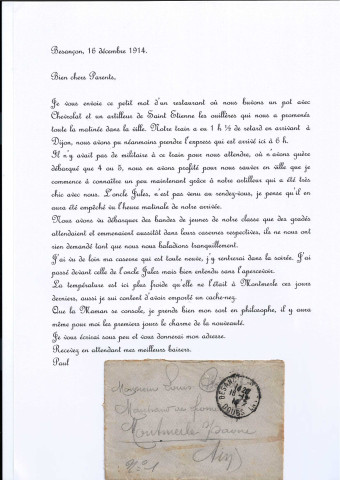 Besançon, 16 décembre 1914.
Bien chers Parents,
Je vous envoie ce petit mot d'un restaurant où nous buvons un pot avec
Chevrolat et un artilleur de Saint Etienne les ouillères qui nous a promenés
toute la matinée dans la ville. Notre train a eu 1 h ½ de retard en arrivant à
Dijon, nous avons pu néanmoins prendre l'express qui est arrivé ici à 6 h.
Il n'y avait pas de militaire à ce train pour nous attendre, où n'avons guère
débarqué que 4 ou 5, nous en avons profité pour nous sauver en ville que je
commence à connaître un peu maintenant grâce à notre artilleur qui a été très
chic avec nous. L'oncle Jules, n'est pas venu au rendez-vous, je pense qu'il en
aura été empêché vu l'heure matinale de notre arrivée.
Nous avons vu débarquer des bandes de jeunes de notre classe que des gradés
attendaient et emmenaient aussitôt dans leurs casernes respectives, ils ne nous ont
rien demandé tant que nous nous baladions tranquillement.
J'ai vu de loin ma caserne qui est toute neuve, j'y rentrerai dans la soirée. J'ai
passé devant celle de l'oncle Jules mais bien entendu sans l'apercevoir.
La température est ici plus froide qu'elle ne l'était à Montmerle ces jours
derniers, aussi je suis content d'avoir emporté un cache-nez.
Que la Maman se console, je prends bien mon sort en philosophe, il y aura
même pour moi les premiers jours le charme de la nouveauté.
Je vous écrirai sous peu et vous donnerai mon adresse.
Recevez en attendant mes meilleurs baisers.
Paul
BESANÇON
DOUBS
Monsieur Louis
Montmerle s/Saône
Ain